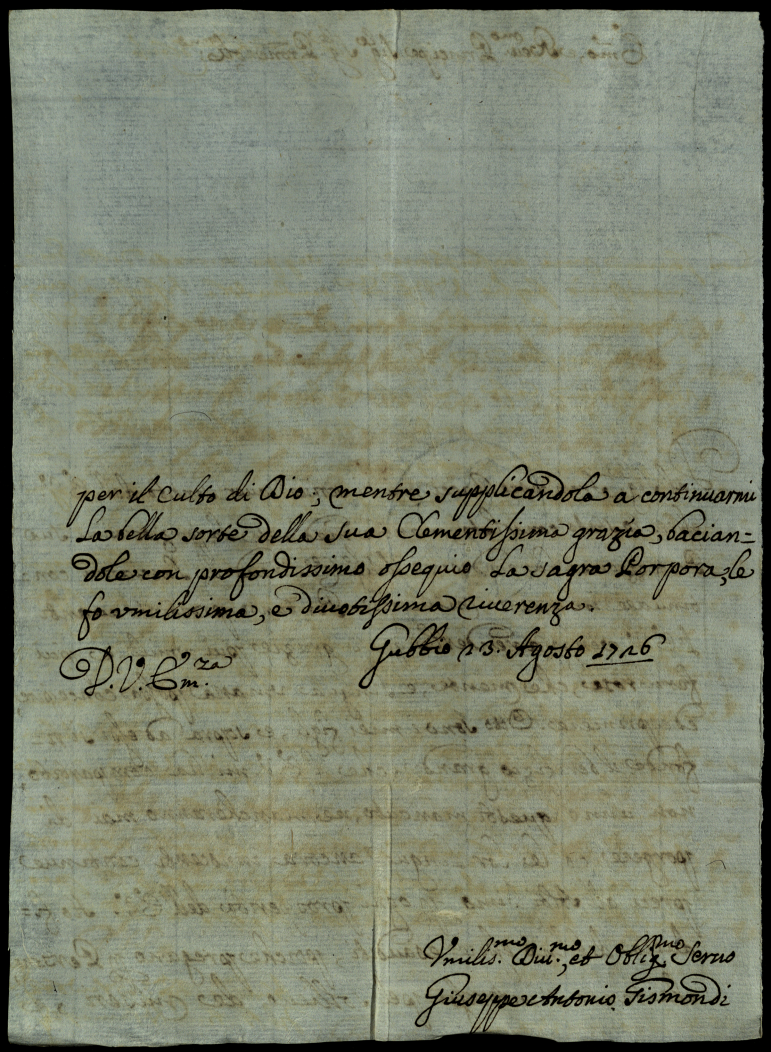 per il Culto di Dio; mentre supplicandola a continuarmi
La bella sorte della sua Clementissima grazia, bacian-
dole con profondissimo ossequio La sagra Porpora, le
fo vmilissima, e diuotissima riuerenza.
Gubbio 23. Agosto 1726
D. V. Em.za
Vmilis.mo Diu.mo, et Oblig.mo Seruo
Giuseppe Antonio Gismondi